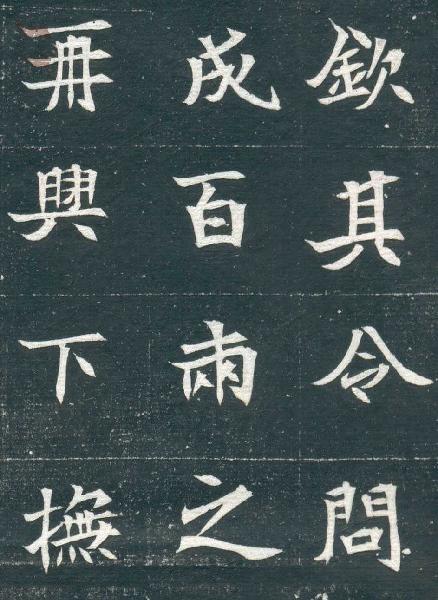 欽其令問
成百兩之
再興下撫